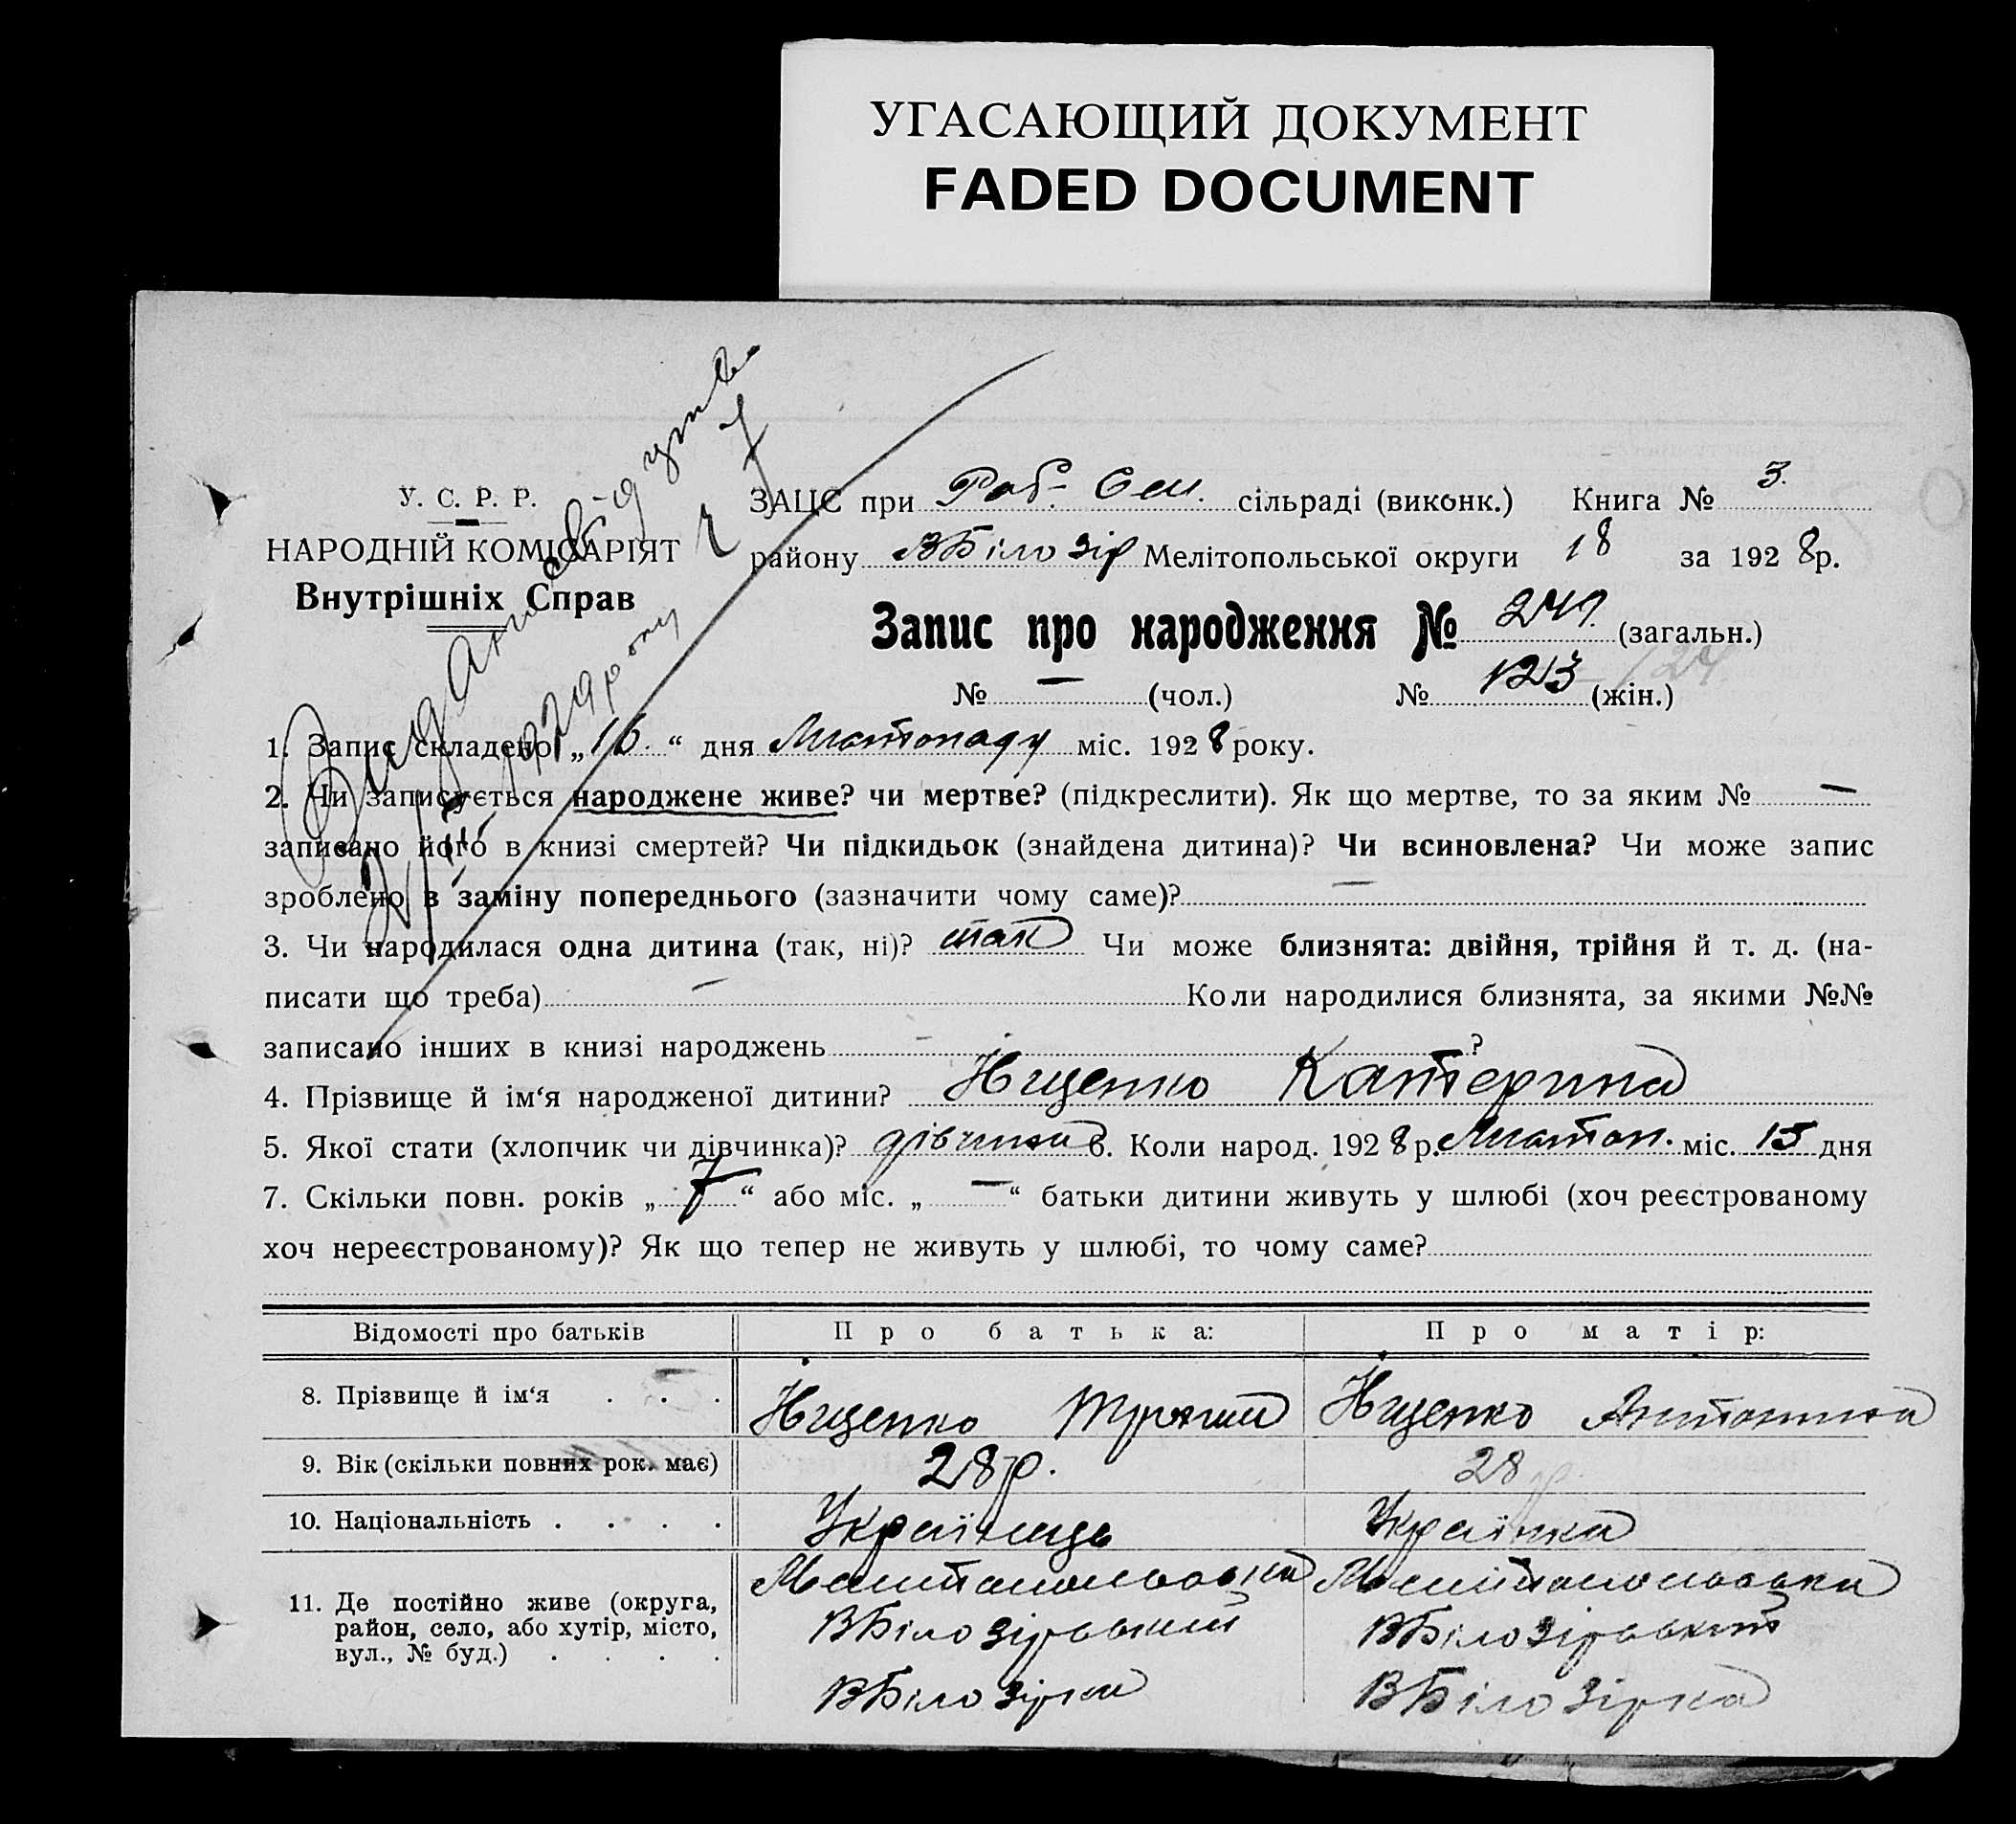 УГАСАЮЩИЙ ДОКУМЕНТ
FADED DOCUMENT
У. С. Р. Р.
НАРОДНІЙ КОМІСАРІЯТ
Внутрішніх Справ
ЗАЦС при Роб- Сел. сільраді (виконк.) Книга № 3.
району ВБілозір Мелітопольської округи 18 за 1928р.
Запис про народження № 241. (загальн.)
№ — (чол.) № 123 (жін.) 124
1. Запис складено „16.“ дня Листопаду міс. 1928 року.
2. Чи записується народжене живе? чи мертве? (підкреслити). Як що мертве, то за яким № —
записано його в книзі смертей? Чи підкидьок (знайдена дитина)? Чи всиновлена? Чи може запис
зроблено в заміну попереднього (зазначити чому саме)? —
3. Чи народилася одна дитина (так, ні)? так Чи може близнята: двійня, трійня й т. д. (на-
писати що треба) — Коли народилися близнята, за якими №№
записано інших в книзі народжень — ?
4. Прізвище й ім‘я народженої дитини? Іщенко Катерина
5. Якої стати (хлопчик чи дівчинка)? дівчина 6. Коли народ. 1928 р. Листоп. міс. 15 дня
7. Скільки повн. років „ 7 “ або міс. „ — “ батьки дитини живуть у шлюбі (хоч реєстрованому
хоч нереєстрованому)? Як що тепер не живуть у шлюбі, то чому саме?
Відомості про батьків Про батька: Про матір:
8. Прізвище й ім‘я . . . Іщенко Іщенко Антонина
9. Вік (скільки повних рок. має) 28 р. 28 р.
10. Національність . . . . Українець Українка
11. Де постійно живе (округа, район, село, або хутір, місто, вул., № буд.) . . . .
Мелитопольська Мелитопольська
ВБілозірський ВБілозірський
ВБілозірка ВБілозірка